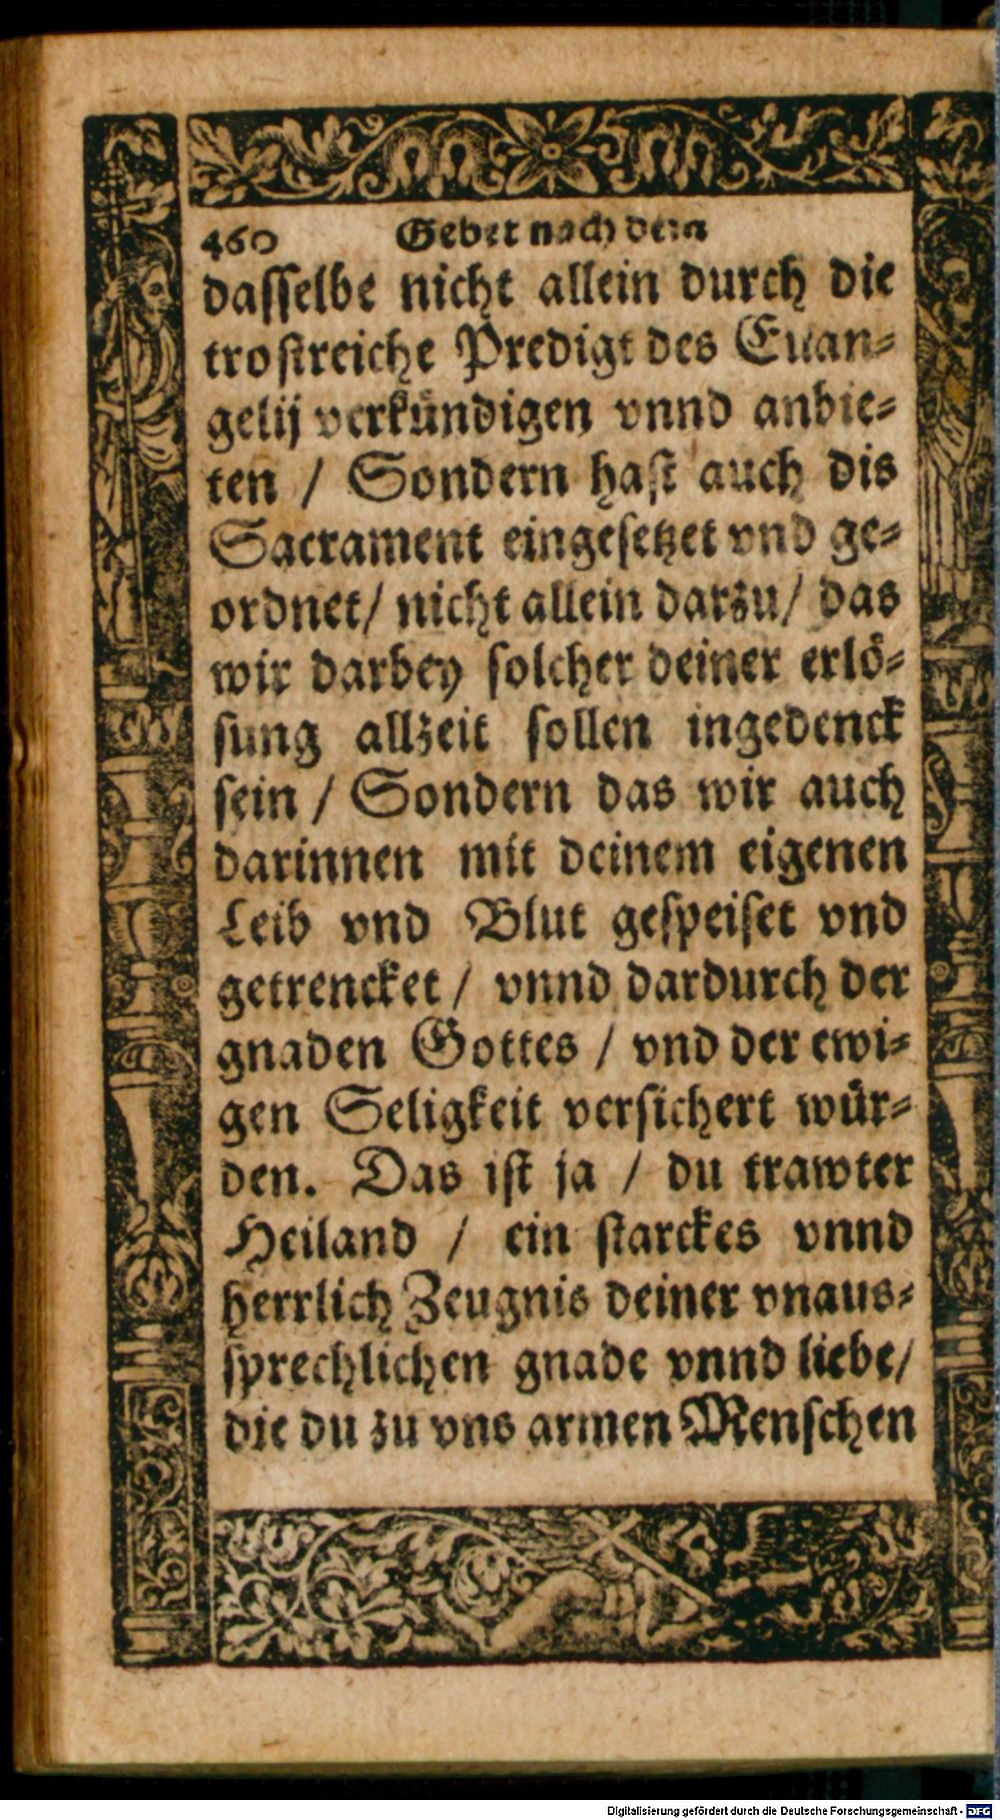 460 Gebet nach dem
dasselbe nicht allein durch die
trostreiche Predigt des Euan-
gelij verkündigen vnnd anbie-
ten / Sondern hast auch dis
Sacrament eingesetzet vnd ge-
ordnet/ nicht allein darzu/ das
wir darbey solcher deiner erlö-
sung allzeit sollen ingedenck
sein / Sondern das wir auch
darinnen mit deinem eigenen
Leib vnd Blut gespeiset vnd
getrencket / vnnd dardurch der
gnaden Gottes / vnd der ewi-
gen Seligkeit versichert wür-
den. Das ist ja / du trawter
Heiland / ein starckes vnnd
herrlich Zeugnis deiner vnaus-
sprechlichen gnade vnnd liebe/
die du zu vns armen Menschen
Digitalisierung gefördert durch die Deutsche Forschungsgemeinschaft - DFG